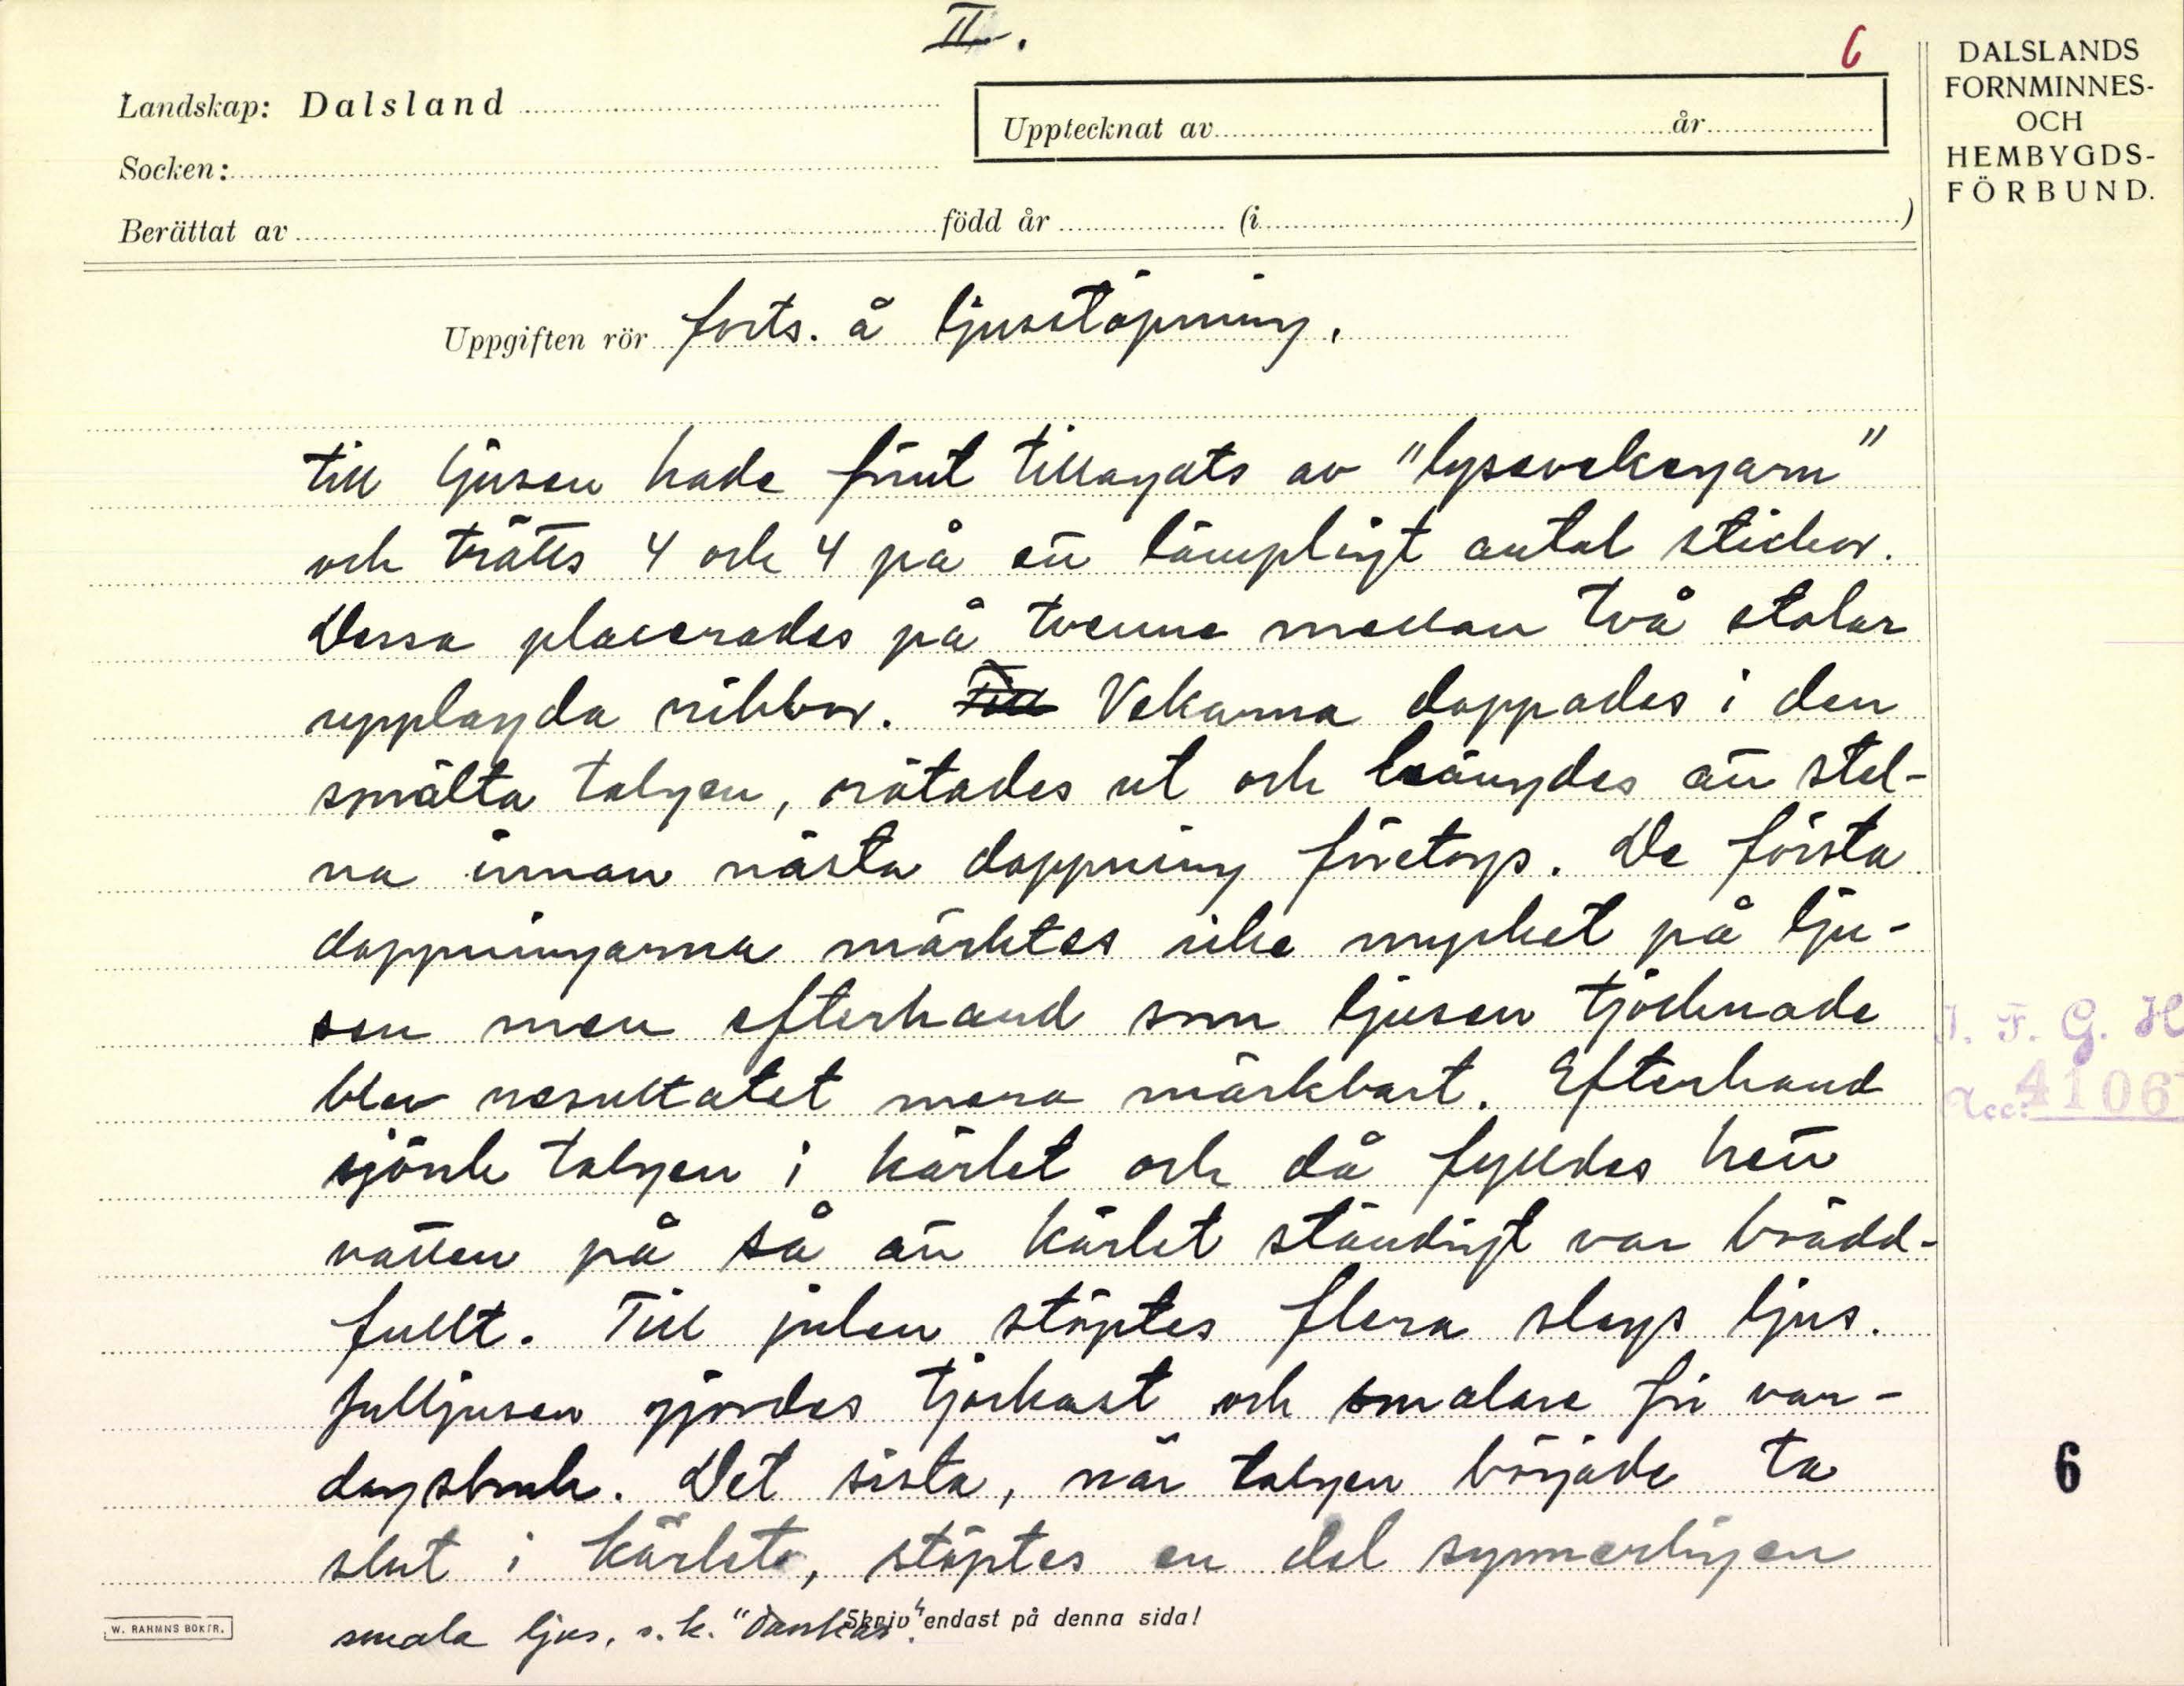 II.
6
DALSLANDS
FORNMINNES-
OCH
HEMBYGDS-
FÖRBUND.
Landskap: Dalsland
Upptecknat av år
Socken:
Berättat av född år (i )
Uppgiften rör forts. å ljusstöpning.
till ljusen hade förut tillagats av "lysevekegarn"
och trätts 4 och 4 på ett lämpligt antal stickor.
Dessa placerades på tvenne mellan två stolar
upplagda ribbor. Till Vekarna doppades i den
smälta talgen, rätades ut och hängdes att stel-
na innan nästa doppning företogs. De första
doppningarna märktes icke mycket på lju-
sen men efterhand som ljusen tjocknade
blev resultatet mera märkbart. Efterhand
sjönk talgen i kärlet och då fylldes hett
vatten på så att kärlet ständigt var brädd-
fullt. Till julen stöptes flera slags ljus.
Julljusen gjordes tjockast och smalare för var-
dagsbruk. Det sista, när talgen började ta
slut i kärlet, stöptes en del synnerligen
smala ljus, s.k. "Dankar".
Skriv endast på denna sida!
W. RAHMNS BOKTR.
I. F. G. H
Acc: 4106
6